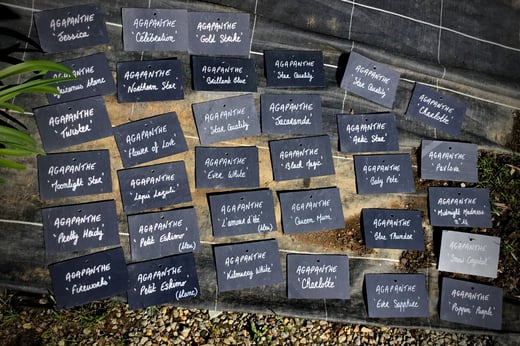 AGAPANTHE
'Jessica'
AGAPANTHE
'Célébration'
AGAPANTHE
'Gold Strike'
AGAPANTHE
AGAPANTHE
'Northern Star'
AGAPANTHE
'Brilliant Blue'
AGAPANTHE
'Star Quality'
AGAPANTHE
'Star Quality'
AGAPANTHE
'Charlotte'
AGAPANTHE
'Twister'
AGAPANTHE
'Flower of Love'
AGAPANTHE
'Star Quality'
AGAPANTHE
'Jacaranda'
AGAPANTHE
'Arctic Star'
AGAPANTHE
'Pavlova'
AGAPANTHE
'Moonlight Star'
AGAPANTHE
'Lapis Lazuli'
AGAPANTHE
'Ever White'
AGAPANTHE
'Black Magic'
AGAPANTHE
'Baby Pete'
AGAPANTHE
'Midnight Madness'
AGAPANTHE
AGAPANTHE
'Petit Eskimo'
(bleu)
AGAPANTHE
'L'amour d'été'
AGAPANTHE
'Queen Mum'
AGAPANTHE
'Blue Thunder'
AGAPANTHE
'Snow Crystal'
AGAPANTHE
'Fireworks'
AGAPANTHE
'Petit Eskimo'
(blanc)
AGAPANTHE
'Kilmurry White'
AGAPANTHE
'Charlotte'
AGAPANTHE
'Ever Sapphire'
AGAPANTHE
'Poppin' Purple'